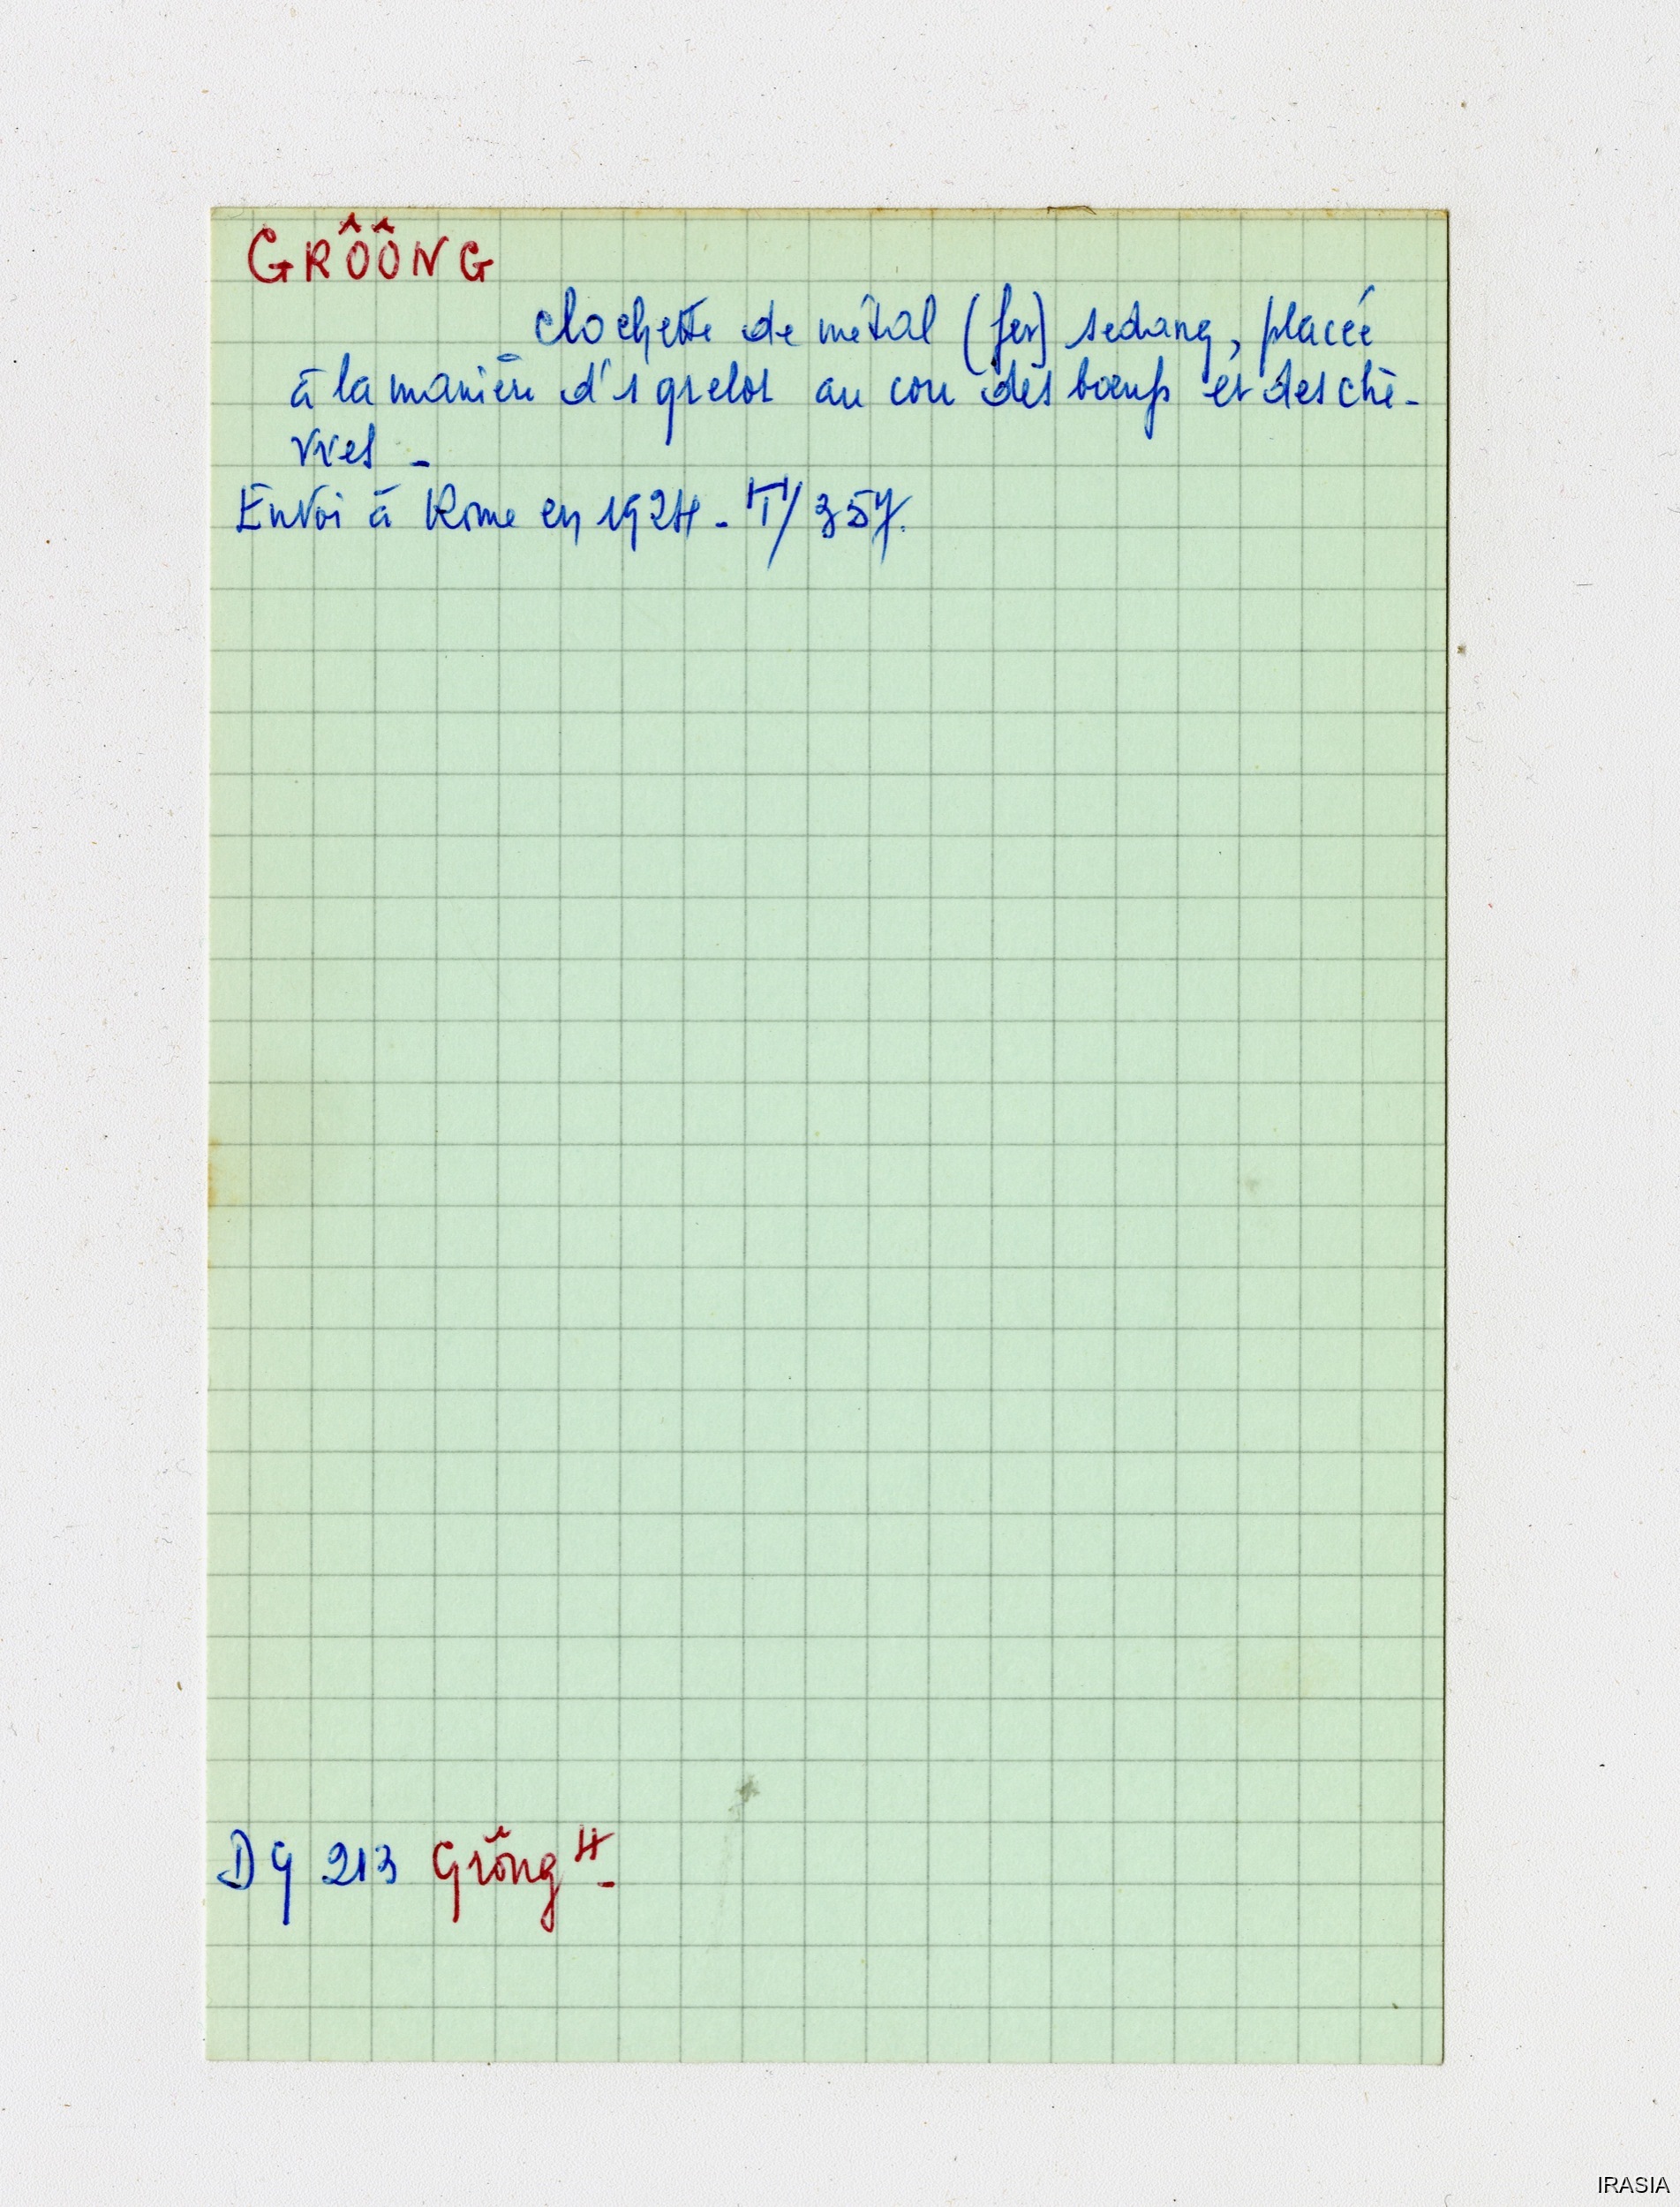 GRÔÔNG
clochette de métal (fer) sedang, placée
à la manière d'1 grelot au cou des bœufs et des chè-
vres -
Envoi à Rome en 1924 - T/357.
DG 213 Grông 4 -
IRASIA